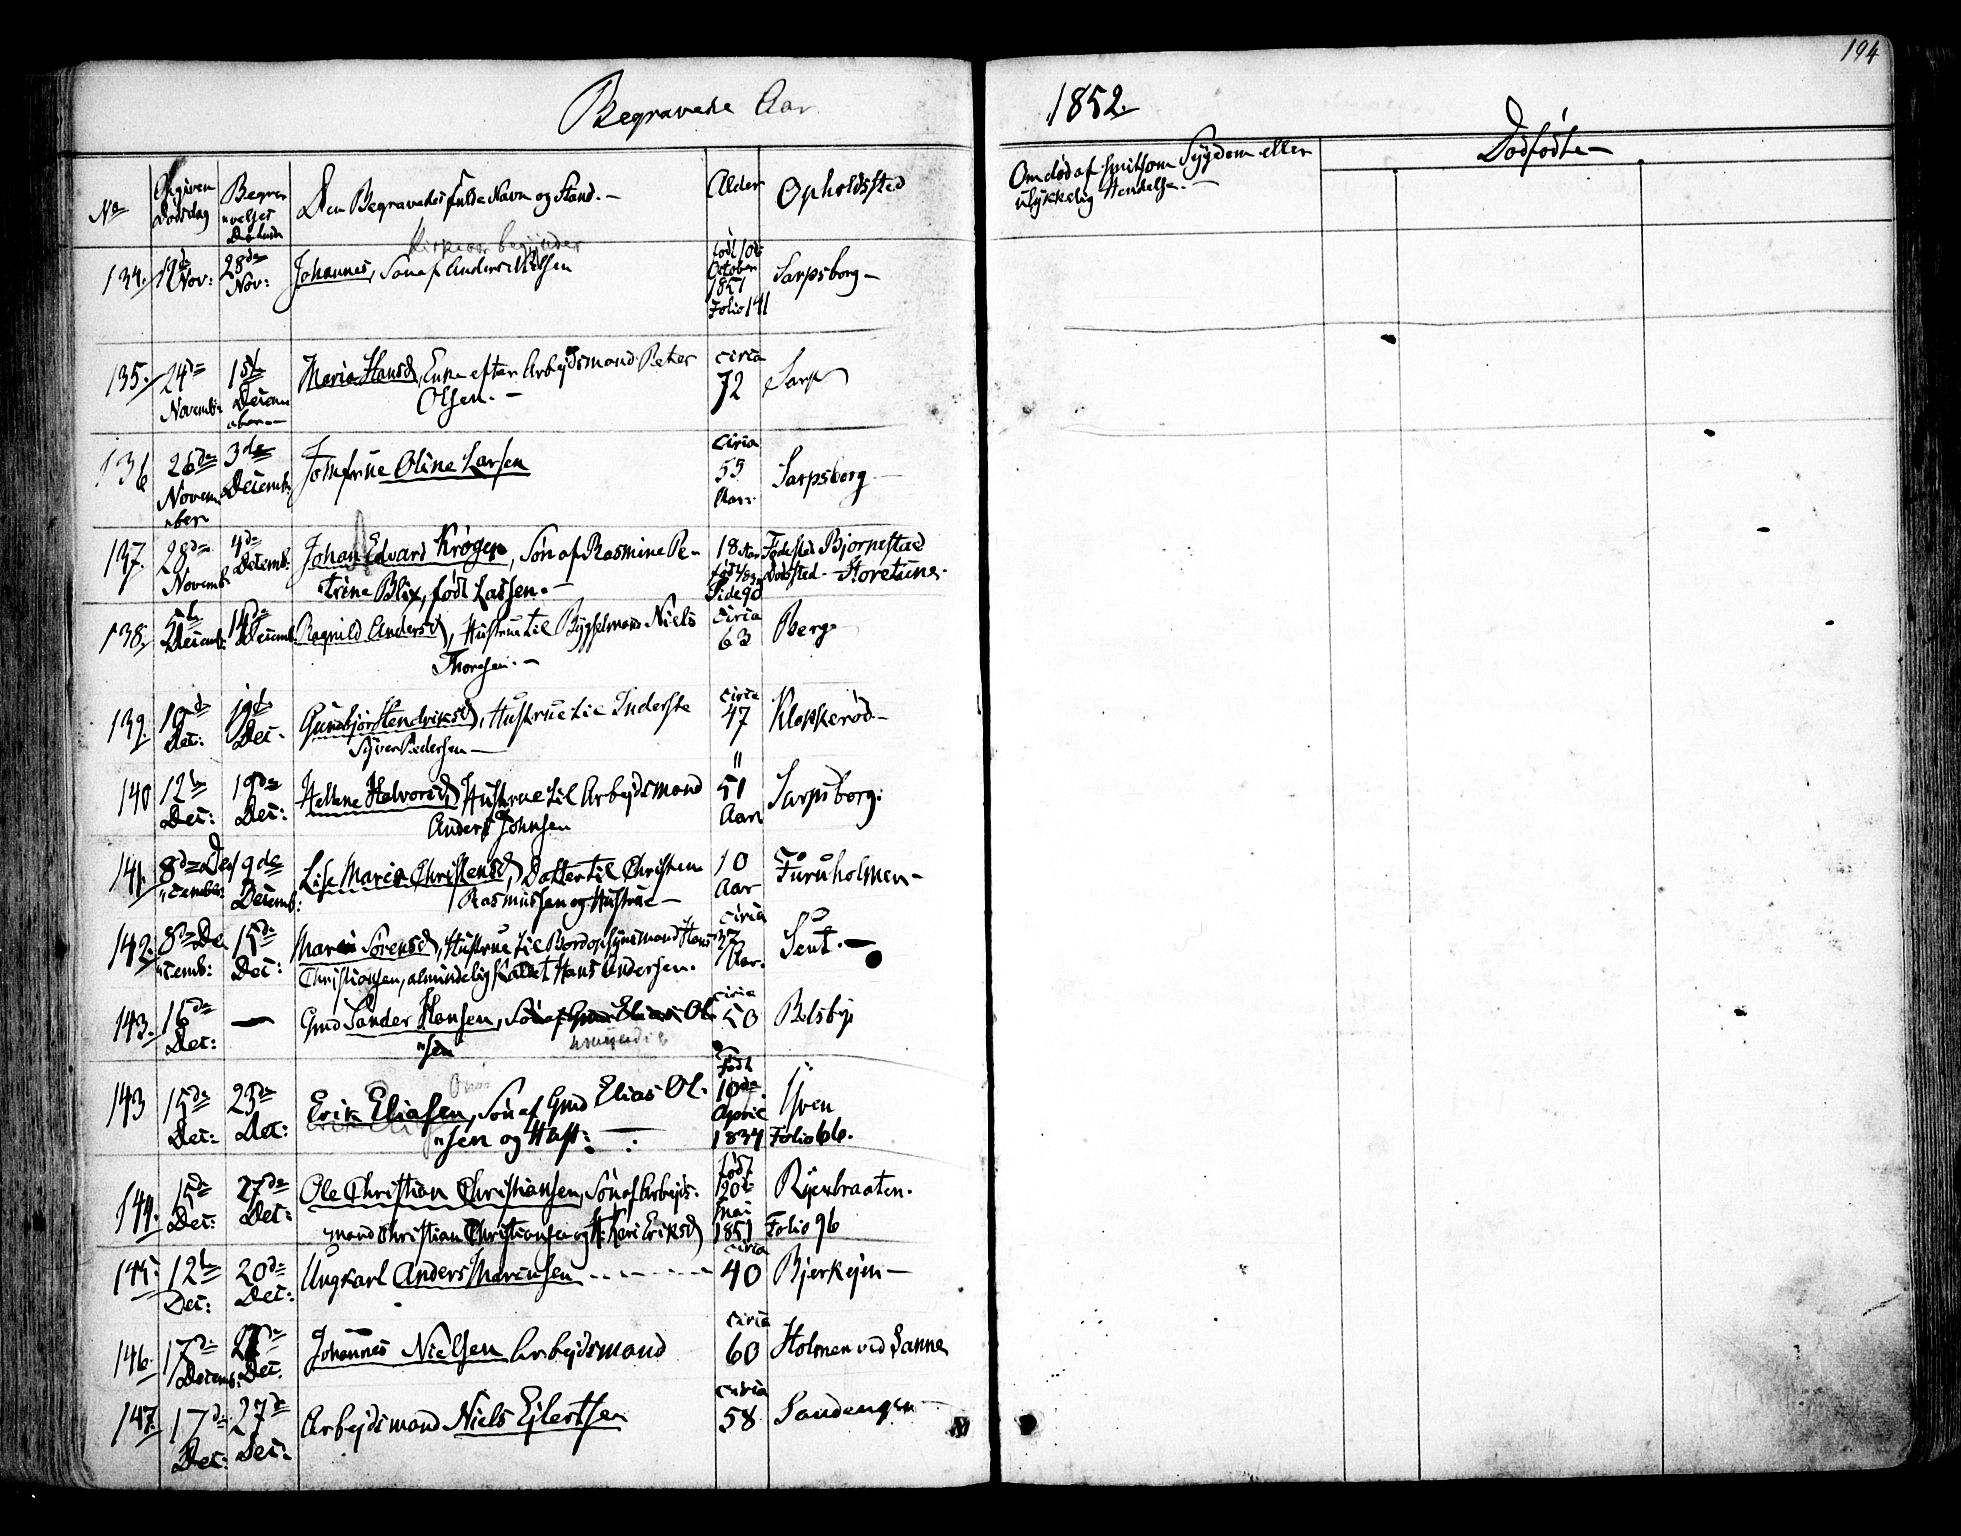 194
Begravede Aar 1852.
No
Opgiven Dødsdag
Begravelses Dag
Den Begravedes fulde Navn og Stand.
Alder
Opholdsted
Om død af smitsom Sygdom eller
ulykkelig Hendelse.
Dødfødte
134. 19de Nov: 28de Nov: Johannes, Søn af Anders Nilsen født 10de October 1851 Folio 141 Sarpsborg
135. 24de Novemb: 1ste Decem
"ber Maria Hansd, Enke efter Arbejdsmand Peter
Olsen. circa 72 Sarp
136 26de Novem
"ber 3de Decemb: Jomfrue Oline Larsen circa 55 Aar Sarpsborg
137. 28de Novemb: 4de Decemb: Johan Edvard Krøger, Søn af Rasmine Pe-
"trine Blix, født Lassen. 18 Aar Side 90 Fødested Bjørnestad
Dødsted Storetune.
138. 5te Decemb: 14de Decemb: Ragnild Andersd, Hustrue til Bygselmand Niels
Thoresen. circa 63 Berg
139. 10de Dec: 19de Dec. Gunnbjør Hendriksd, Hustrue til Inderste
Syver Pedersen circa 47 Klokkerød
140 12te Dec: 19de Dec: Hellene Halvorsd, Hustrue til Arbejdsmand
Anders Johnsen 51 Aar Sarpsborg:
141. 8de De
"cember 19de Decemb: Lise Maria Christensd, Datter til Christen
Rasmussen og Hustrue 10 Aar Furuholmen
142. 8de De
"cemb: 15de Dec: Maren Sørensd, Hustrue til Hans
Christiansen, almindelig kaldet Hans Andersen. circa 37 Aar.
143. 16de Dec: — Gmd Sander Hansen, Søn af Gmd Elias Ol-
"sen circa 50 Belsby
143 15de Dec: 23de Dec: Erik Eliasen, Søn af Gmd Elias Ol-
"sen og Hust: født 10de April 1834 Yven
Folio 66.
144. 15de Dec: 27de Dec: Ole Christian Christiansen, Søn af Arbejds-
mand Christian Christiansen og H. Kari Eriksd født 20de Mai 1851 Folio 96
145. 12te Dec: 20de Dec: Ungkarl Anders Marensen circa 40 Bjerkejen
146. 17de Decemb: 27de Dec. Johannes Nielsen Arbejdsmand circa 60 Holmen ved Sanne
147. 17de Dec: 27de Dec: Arbejdsmand Niels Ejlertsen circa 58 Sandengen